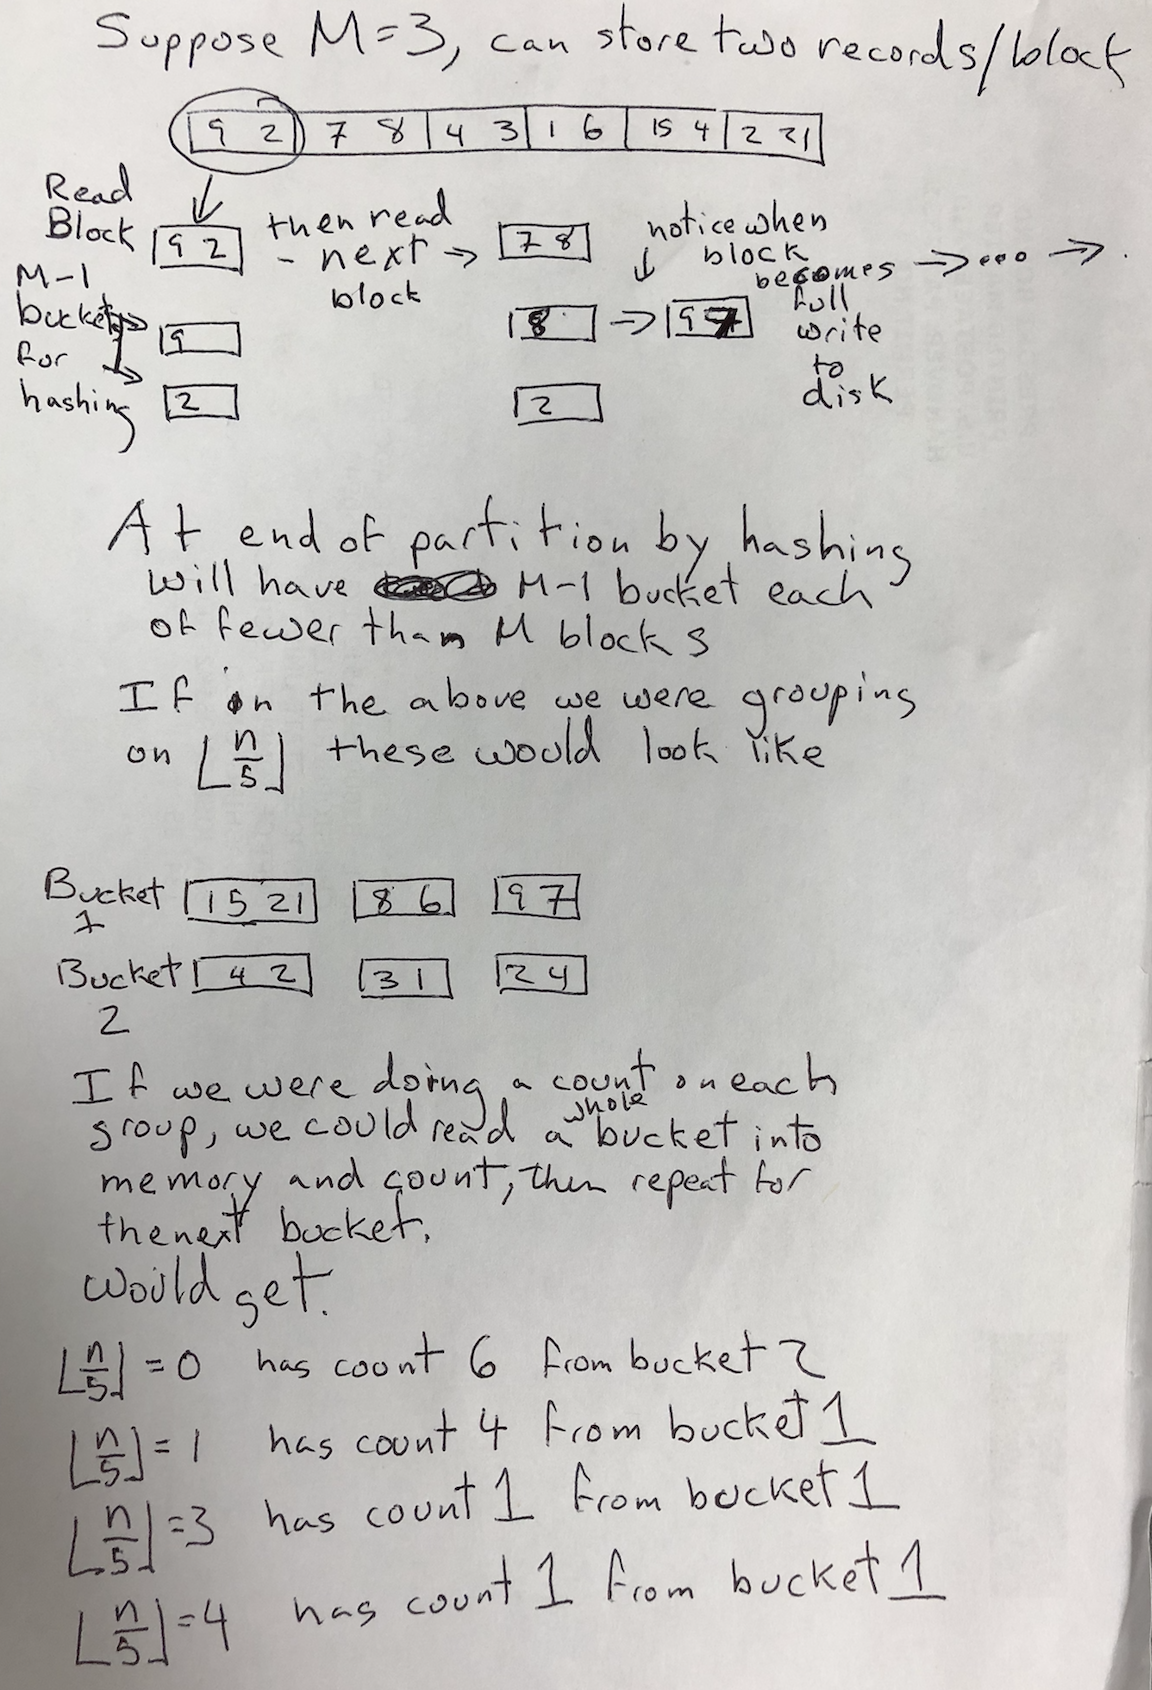 Suppose M=3, can store two records/block
9 2 | 7 8 | 4 3 | 1 6 | 15 4 | 2 21
Read
Block
9 2
then read
- next →
block
7 8
notice when
block
becomes → ... → .
full
write
to
disk
M-1
buckets
for
hashing
9
2
8 → 9 7
2
At end of partition by hashing
will have M-1 bucket each
of fewer than M blocks
If in the above we were grouping
on ⌊n/5⌋ these would look like
Bucket 1 15 21 8 6 9 7
Bucket 2 4 2 3 1 2 4
If we were doing a count on each
group, we could read a whole bucket into
memory and count, then repeat for
the next bucket.
Would get.
⌊n/5⌋ = 0 has count 6 from bucket 2
⌊n/5⌋ = 1 has count 4 from bucket 1
⌊n/5⌋ = 3 has count 1 from bucket 1
⌊n/5⌋ = 4 has count 1 from bucket 1